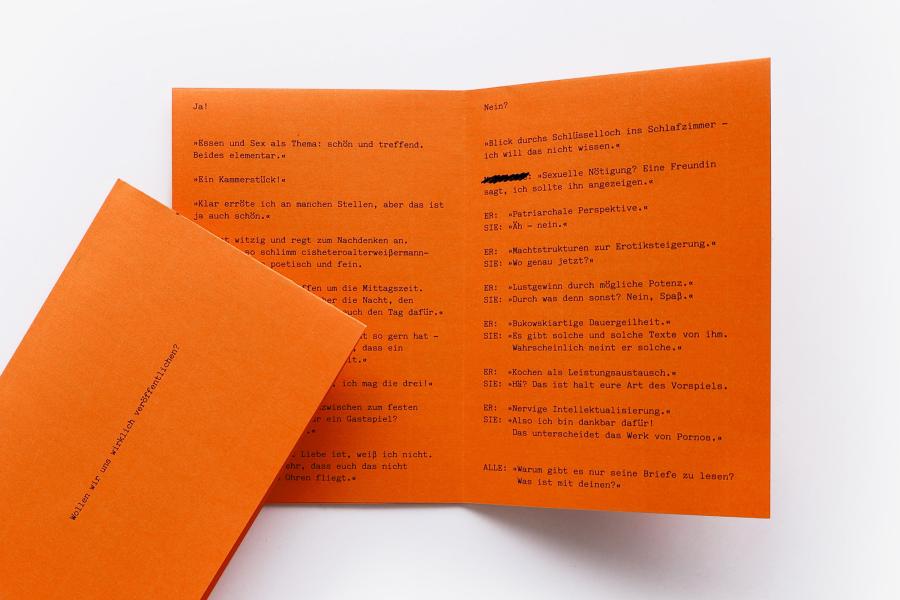 Ja!
»Essen und Sex als Thema: schön und treffend.
Beides elementar.«
»Ein Kammerstück!«
»Klar erröte ich an manchen Stellen, aber das ist
ja auch schön.«
witzig und regt zum Nachdenken an.
so schlimm cisheteroalterweißermann-
poetisch und fein.
um die Mittagszeit.
die Nacht, den
den Tag dafür.«
so gern hat –
dass ein
ich mag die drei!«
zum festen
ein Gastspiel?
Liebe ist, weiß ich nicht.
dass euch das nicht
Ohren fliegt.«
Nein?
»Blick durchs Schlüsselloch ins Schlafzimmer –
ich will das nicht wissen.«
: »Sexuelle Nötigung? Eine Freundin
sagt, ich sollte ihn angezeigen.«
ER: »Patriarchale Perspektive.«
SIE: »Äh – nein.«
ER: »Machtstrukturen zur Erotiksteigerung.«
SIE: »Wo genau jetzt?»
ER: »Lustgewinn durch mögliche Potenz.«
SIE: »Durch was denn sonst? Nein, Spaß.«
ER: »Bukowskiartige Dauergeilheit.«
SIE: »Es gibt solche und solche Texte von ihm.
Wahrscheinlich meint er solche.«
ER: »Kochen als Leistungsaustausch.«
SIE: »Hä? Das ist halt eure Art des Vorspiels.
ER: »Nervige Intellektualisierung.«
SIE: »Also ich bin dankbar dafür!
Das unterscheidet das Werk von Pornos.«
ALLE: »Warum gibt es nur seine Briefe zu lesen?
Was ist mit deinen?«
Wollen wir uns wirklich veröffentlichen?